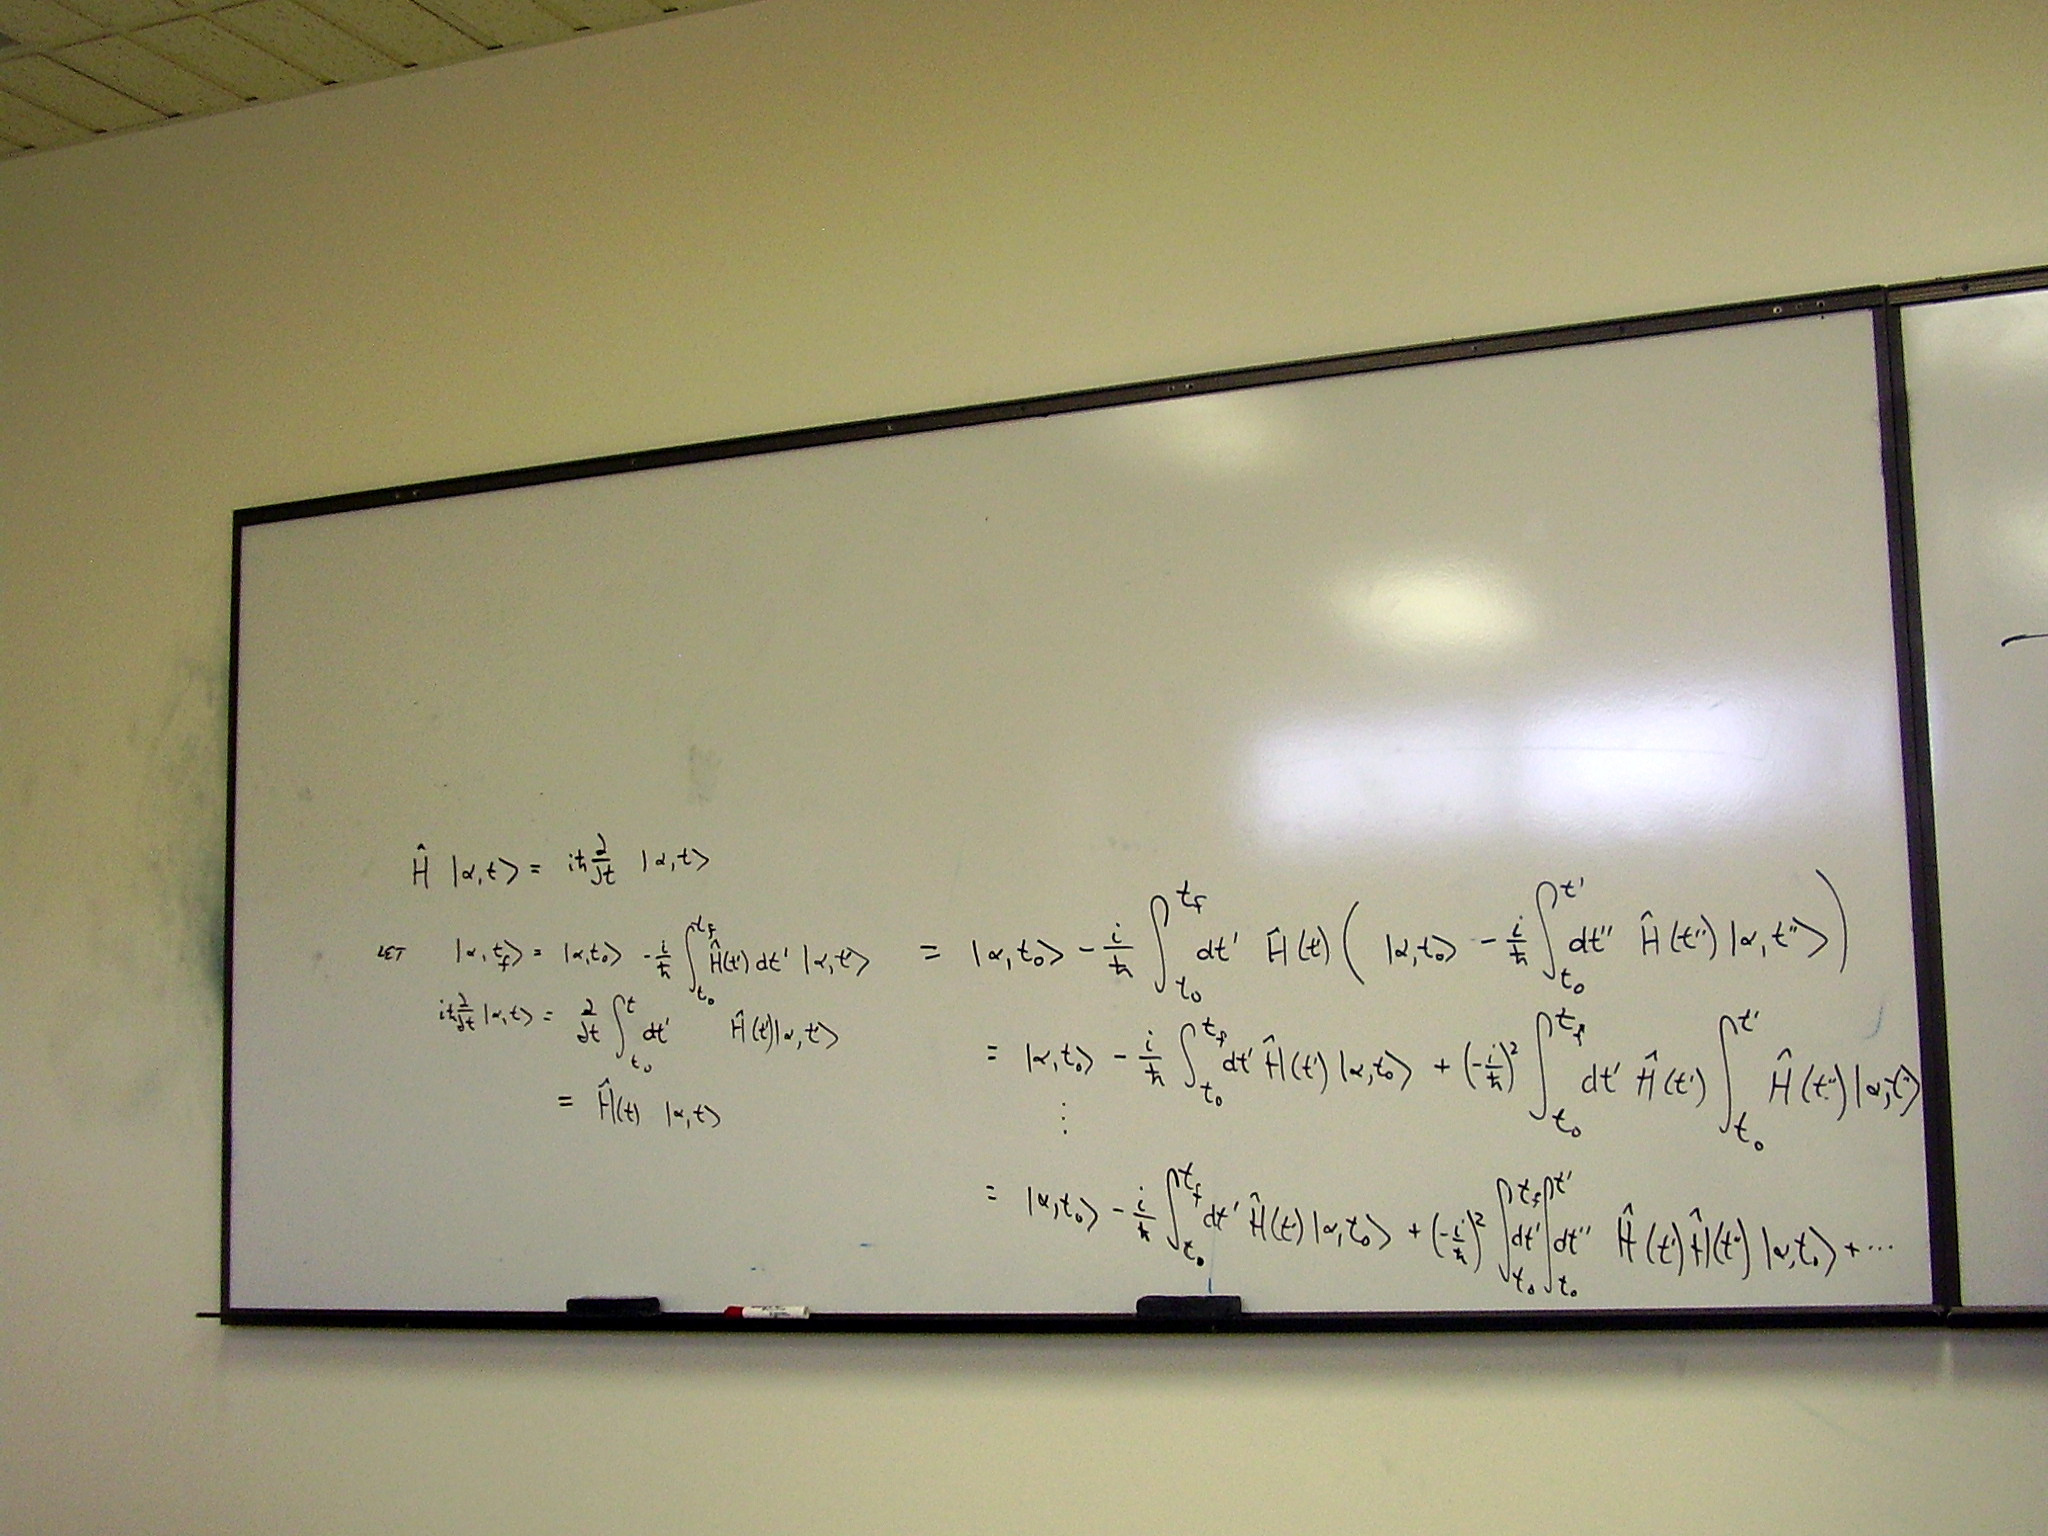 Ĥ |α,t⟩ = iħ ∂/∂t |α,t⟩
LET |α,t_f⟩ = |α,t₀⟩ - i/ħ ∫_{t₀}^{t_f} Ĥ(t') dt' |α,t'⟩
iħ ∂/∂t |α,t⟩ = ∂/∂t ∫_{t₀}^{t} dt' Ĥ(t')|α,t'⟩
= Ĥ(t) |α,t⟩
= |α,t₀⟩ - i/ħ ∫_{t₀}^{t_f} dt' Ĥ(t') ( |α,t₀⟩ - i/ħ ∫_{t₀}^{t'} dt'' Ĥ(t'') |α,t''⟩ )
= |α,t₀⟩ - i/ħ ∫_{t₀}^{t_f} dt' Ĥ(t') |α,t₀⟩ + (-i/ħ)² ∫_{t₀}^{t_f} dt' Ĥ(t') ∫_{t₀}^{t'} Ĥ(t'') |α,t''⟩
⋮
= |α,t₀⟩ - i/ħ ∫_{t₀}^{t_f} dt' Ĥ(t') |α,t₀⟩ + (-i/ħ)² ∫_{t₀}^{t_f} dt' ∫_{t₀}^{t'} dt'' Ĥ(t') Ĥ(t'') |α,t₀⟩ + ...